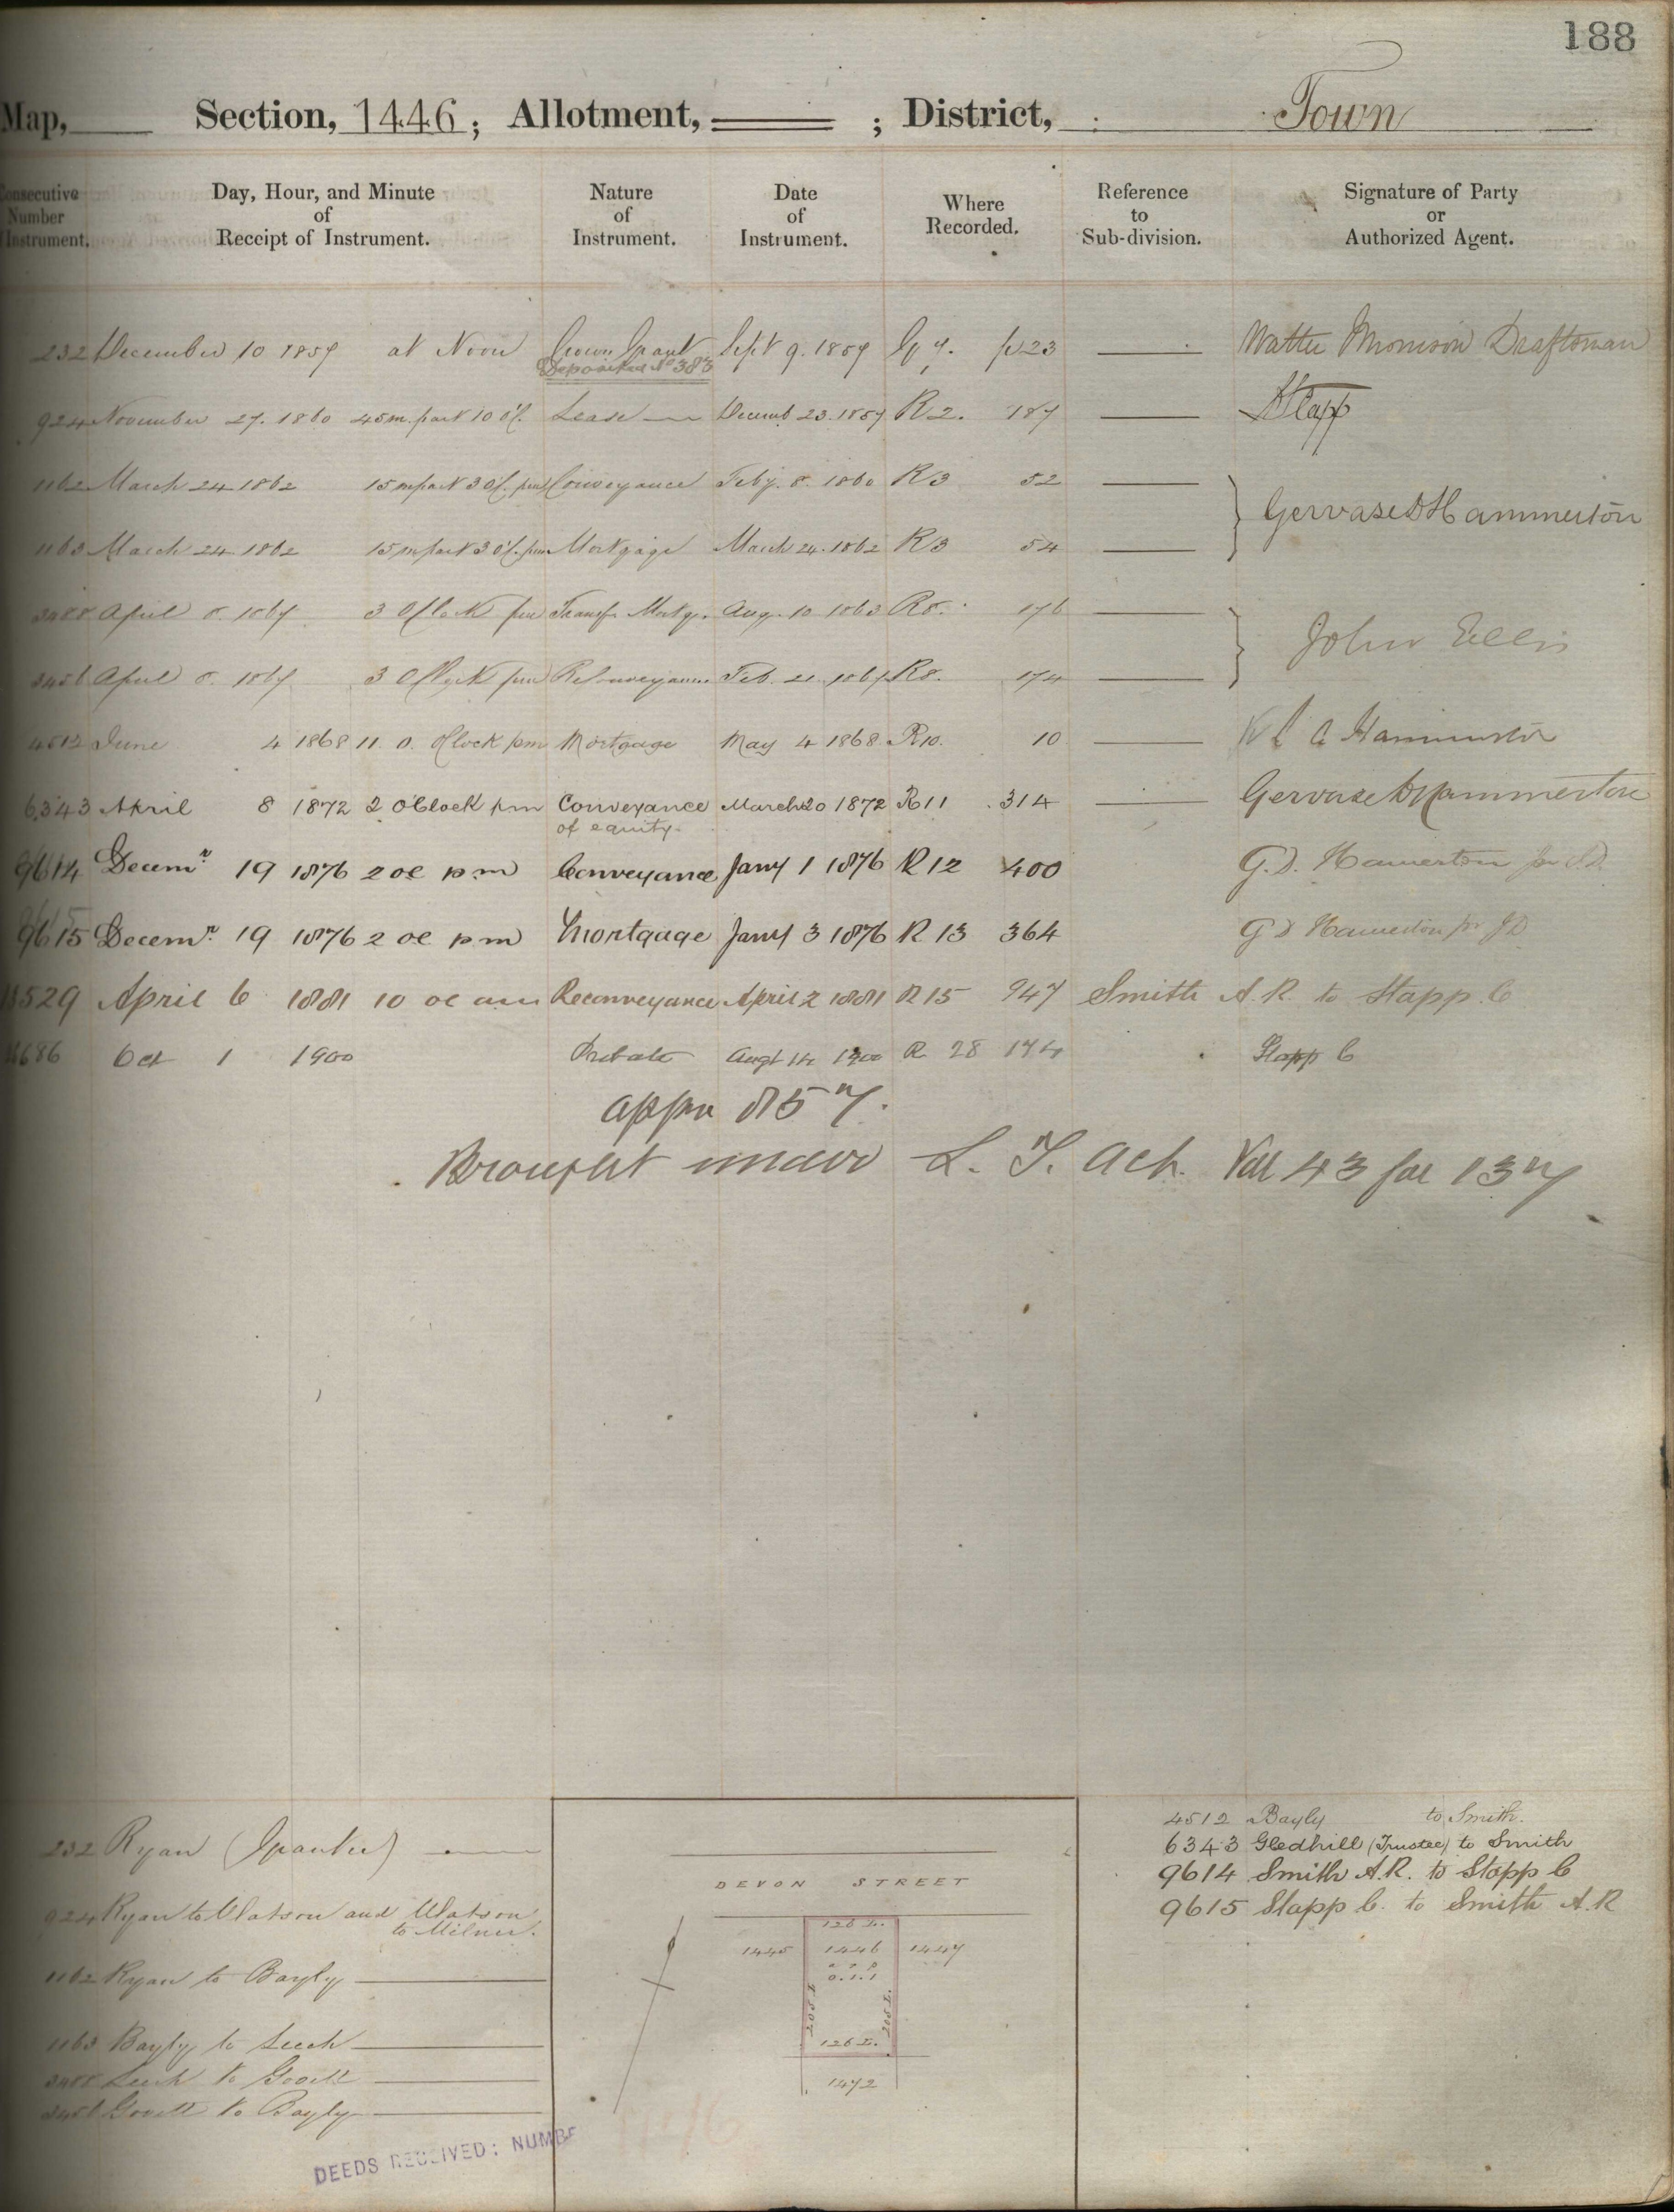 188
Map, Section, 1446; Allotment, ; District, Town
Consecutive Number Instrument. Day, Hour, and Minute of Receipt of Instrument. Nature of Instrument. Date of Instrument. Where Recorded. Reference to Sub-division. Signature of Party or Authorized Agent.
232 December 10 1857 at Noon Crown Grant Sept 9. 1857 p 23 Draftsman
Deposited No 383
924 November 27. 1860 45 m. past 10 Lease Decemb 23. 1857 R 2. 187 Stapp
1162 March 24 1862 15 m past 3 Conveyance Feby. 8. 1860 R 3 52
Gervase D Hammerton
1163 March 24 1862 15 m past 3 Mortgage March 24. 1862 R 3 54
April 8. 1867 3 OClock pm Transfr Mortge. Aug. 10 1863 R 8. 176
John Ellis
April 8. 1867 3 OClock pm Reconveyance Feb. 21 1867 R 8. 174
4512 June 4 1868 11. 0. oClock pm Mortgage May 4 1868 R 10. 10 Hammerton
6343 April 8 1872 2 O'Clock pm Conveyance March 20 1872 R 11 314 Gervase D Hammerton
of equity.
9614 Decemr. 19 1876 2 oc pm Conveyance Jany 1 1876 R 12 400 G. D. Hamerton
9615 Decemr. 19 1876 2 oc pm Mortgage Jany 3 1876 R 13 364 G D Hamerton
529 April 6 1881 10 oc am Reconveyance April 2 1881 R 15 947 Smith A. R. to Stapp C
686 Oct 1 1900 Probate Augt 14 1900 R 28 174 Stapp C
appn 857.
Brought under L. T. Act. Vol 43 fol 137
232 Ryan (Grantee)
924 Ryan to Watson and Watson
to Milner.
1162 Ryan to Bayly
1163 Bayly to Leech
Leech to Govett
Govett to Bayly
DEEDS RECEIVED: NUMBE
DEVON STREET
126 L.
1445 1446 1447
a r p
0. 1. 1
205 L 205 L.
126 L.
1472
4512 Bayly to Smith.
6343 Gledhill (Trustee) to Smith
9614 Smith A.R. to Stapp C
9615 Stapp C. to Smith A.R